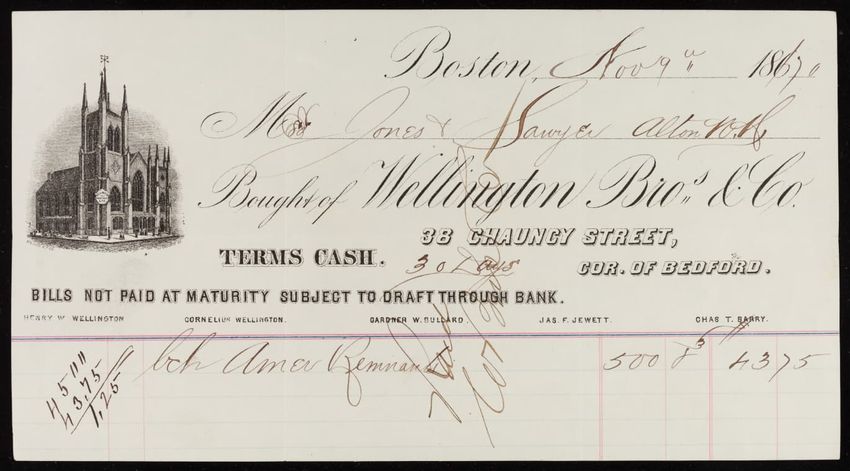 Boston, Nov 9" 1870
Mess Jones & Sawyer Alton N.H.
Bought of Wellington Bro.s & Co.
38 CHAUNCY STREET,
TERMS CASH. 30 Days COR. OF BEDFORD.
BILLS NOT PAID AT MATURITY SUBJECT TO DRAFT THROUGH BANK.
HENRY W. WELLINGTON CORNELIUS WELLINGTON. GARDNER W. BULLARD. JAS. F. JEWETT. CHAS T. BARRY.
Amer Remnants 500 8¾ 43 75
45 00
43.75
1.25